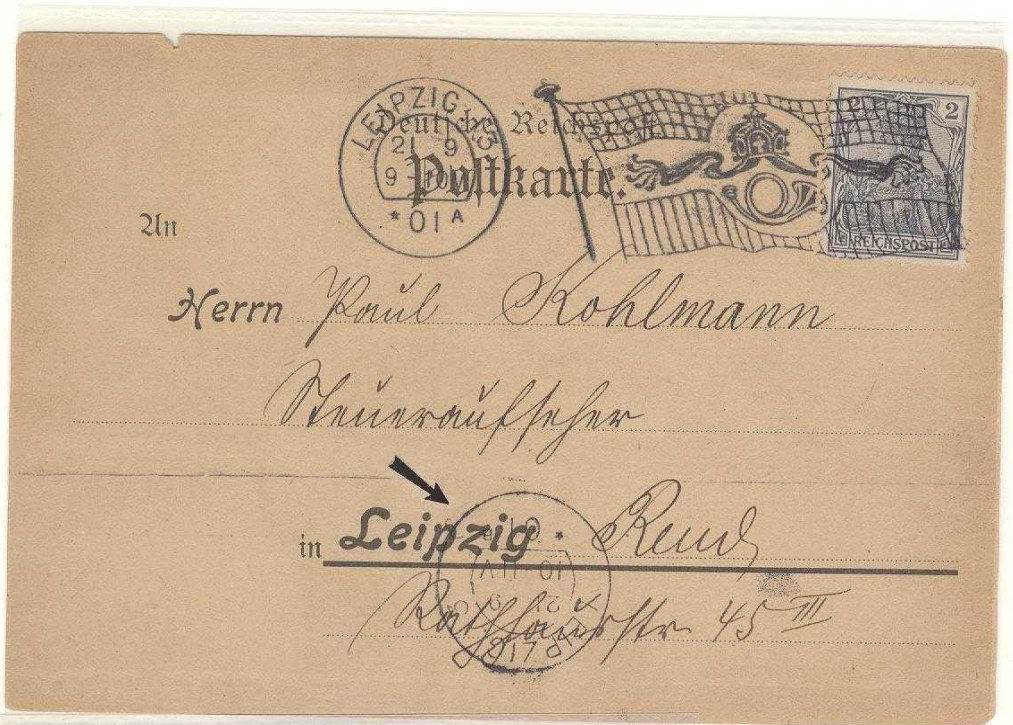 LEIPZIG 13
21 9
01 A
Deutsche Reichspost
Postkarte.
2
REICHSPOST
An
Herrn Paul Kohlmann
Steueraufseher
in Leipzig Reud
Rathhausstr 45 III